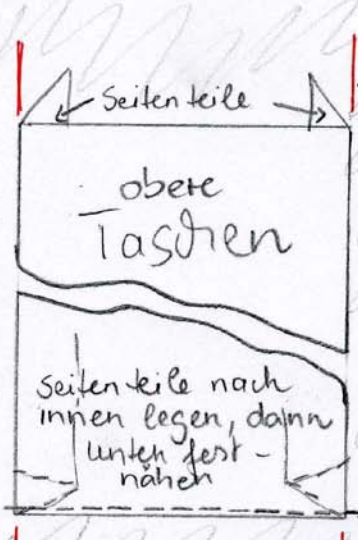 Seitenteile
obere
Taschen
Seitenteile nach
innen legen, dann
unten fest-
nähen